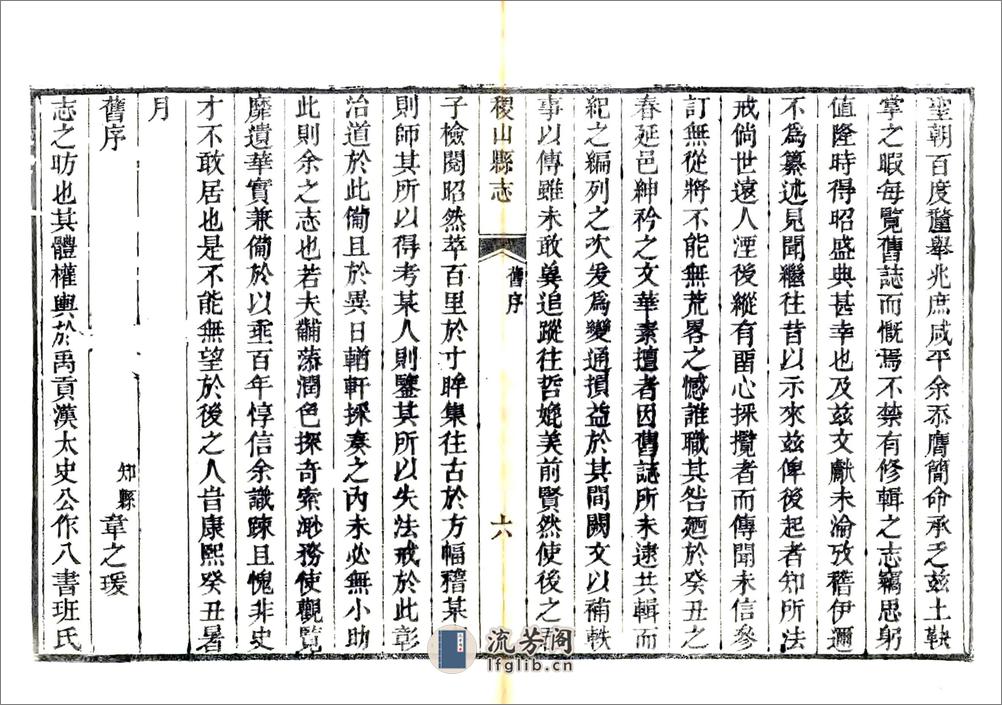 聖朝百度釐舉兆庶咸平余忝膺簡命承乏兹土鞅
掌之暇每覽舊誌而慨焉不禁有修輯之志竊思躬
值隆時得昭盛典甚幸也及兹文獻未淪攷稽伊邇
不爲纂述見聞繼往昔以示來兹俾後起者知所法
戒倘世遠人湮後縱有留心採攬者而傳聞未信參
訂無從將不能無荒畧之憾誰職其咎廼於癸丑之
春延邑紳衿之文華素擅者因舊誌所未逮共輯而
紀之編列之次爰爲變通損益於其間闕文以補軼
事以傳雖未敢冀追蹤往哲媲美前賢然使後之君
稷山縣志
舊序
六
子檢閱昭然萃百里於寸眸集往古於方幅稽某
則師其所以得考某人則鑒其所以失法戒於此彰
治道於此備且於異日輶軒採奏之內未必無小助
此則余之志也若夫黼藻潤色探奇索渺務使觀覽
靡遺華實兼備於以垂百年惇信余識踈且愧非史
才不敢居也是不能無望於後之人旹康熙癸丑暑
月
舊序
知縣 章之瑗
志之昉也其體權輿於禹貢漢太史公作八書班氏
流芳阁
lfglib.cn